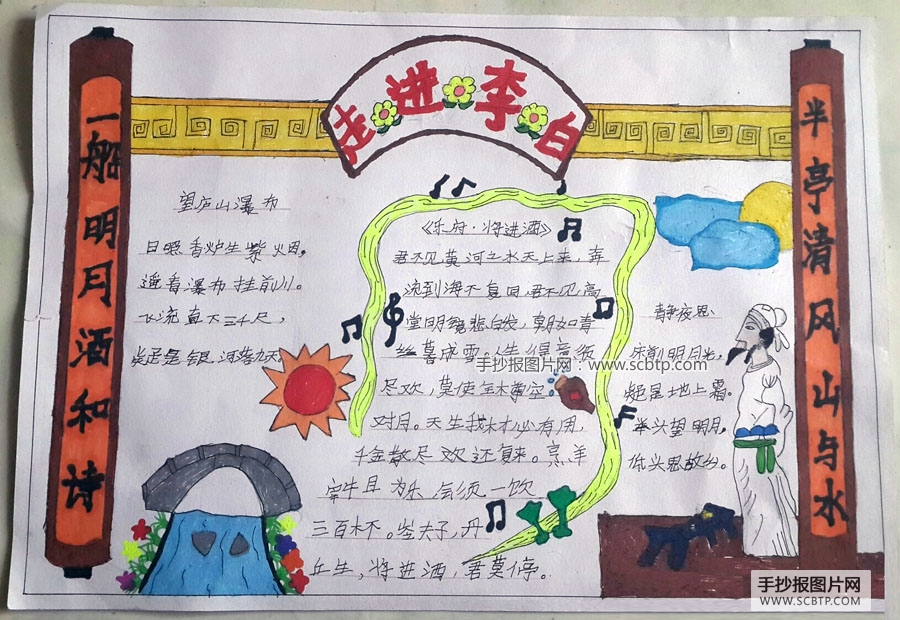 走进李白
一船明月酒和诗
半亭清风山与水
望庐山瀑布
日照香炉生紫烟，
遥看瀑布挂前川。
飞流直下三千尺，
疑是银河落九天
《乐府·将进酒》
君不见黄河之水天上来，奔
流到海不复回君不见高
堂明镜悲白发，朝如青
丝暮成雪。人生得意须
尽欢，莫使金樽空
对月。天生我材必有用，
千金散尽欢还复来。烹羊
宰牛且为乐会须一饮
三百杯。岑夫子，丹
丘生，将进酒，君莫停。
静夜思、
床前明月光，
疑是地上霜。
举头望明月，
低头思故乡。
手抄报图片网：www.scbtp.com
手抄报图片网
WWW.SCBTP.COM